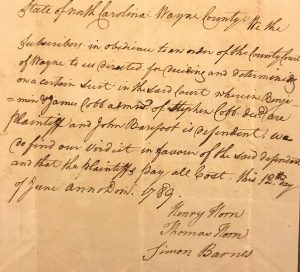 State of North Carolina. Wayne County. We the
Subscribers in obedience to an order of the County Court
of Wayne to us Directed for deciding and determining
on a certain Suit in the said Court wherein Benja
=min & James Cobb admrs. of Stephen Cobb Decd. are
Plaintiff and John Barefoot is Defendent. We
do find our Virdict in favour of the said defendent
and that the plaintiffs pay all Cost. this 12th day
of June anno Dom. 1789.
Henry Horn
Thomas Horn
Simon Barnes